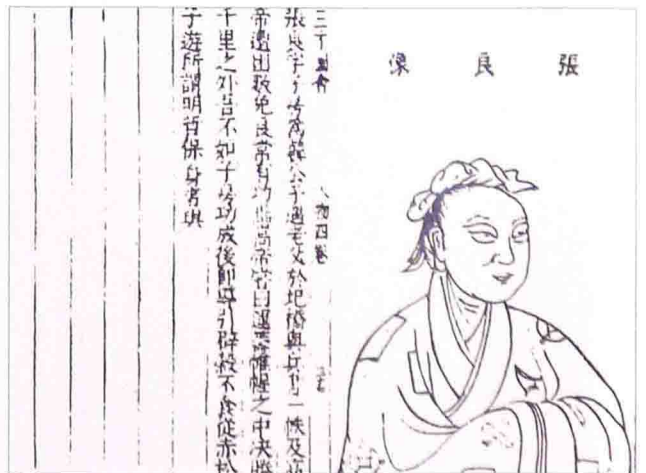 張良像
三才圖會 人物四卷
張良字子房為韓公子遇老父於圯橋與兵書一帙及高
帝邊出數危良常有功 高帝嘗曰運籌帷幄之中決勝
千里之外吾不如子房功成後即導引辟穀不食從赤松
子遊所謂明哲保身者與